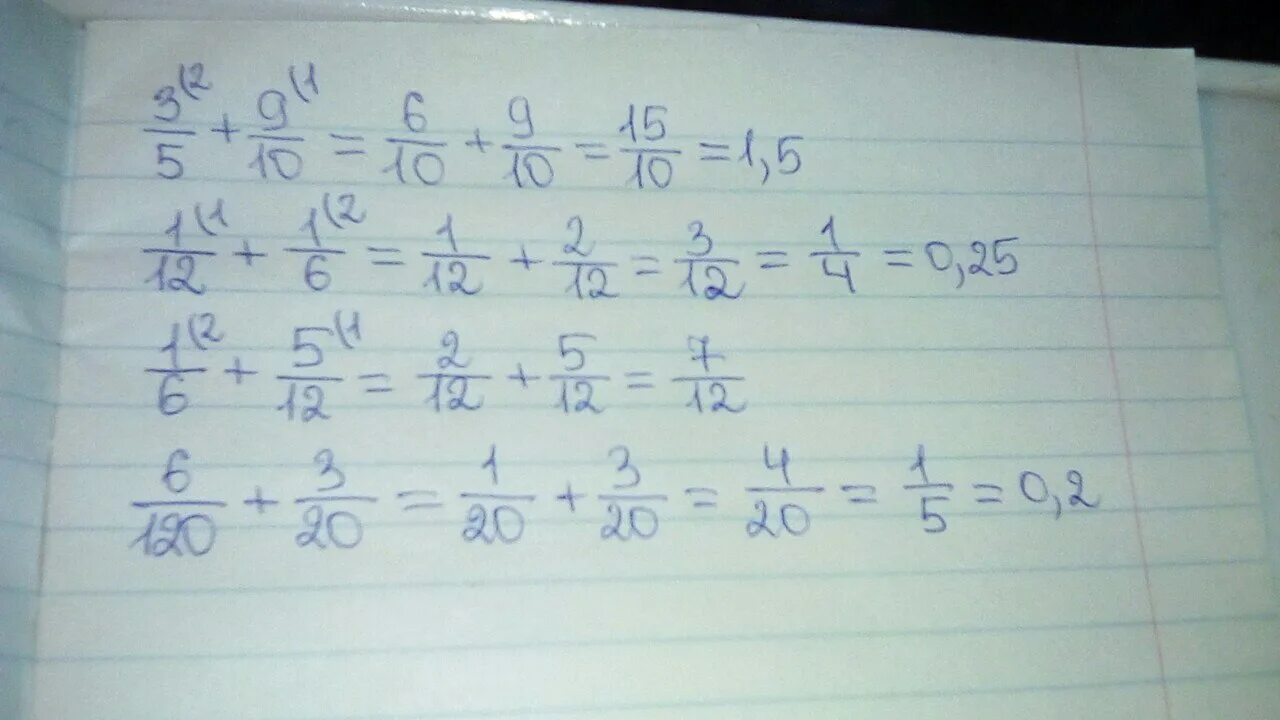 3/5 (2 + 9/10 (1 = 6/10 + 9/10 = 15/10 = 1,5
1/12 (1 + 1/6 (2 = 1/12 + 2/12 = 3/12 = 1/4 = 0,25
1/6 (2 + 5/12 (1 = 2/12 + 5/12 = 7/12
6/120 + 3/20 = 1/20 + 3/20 = 4/20 = 1/5 = 0,2